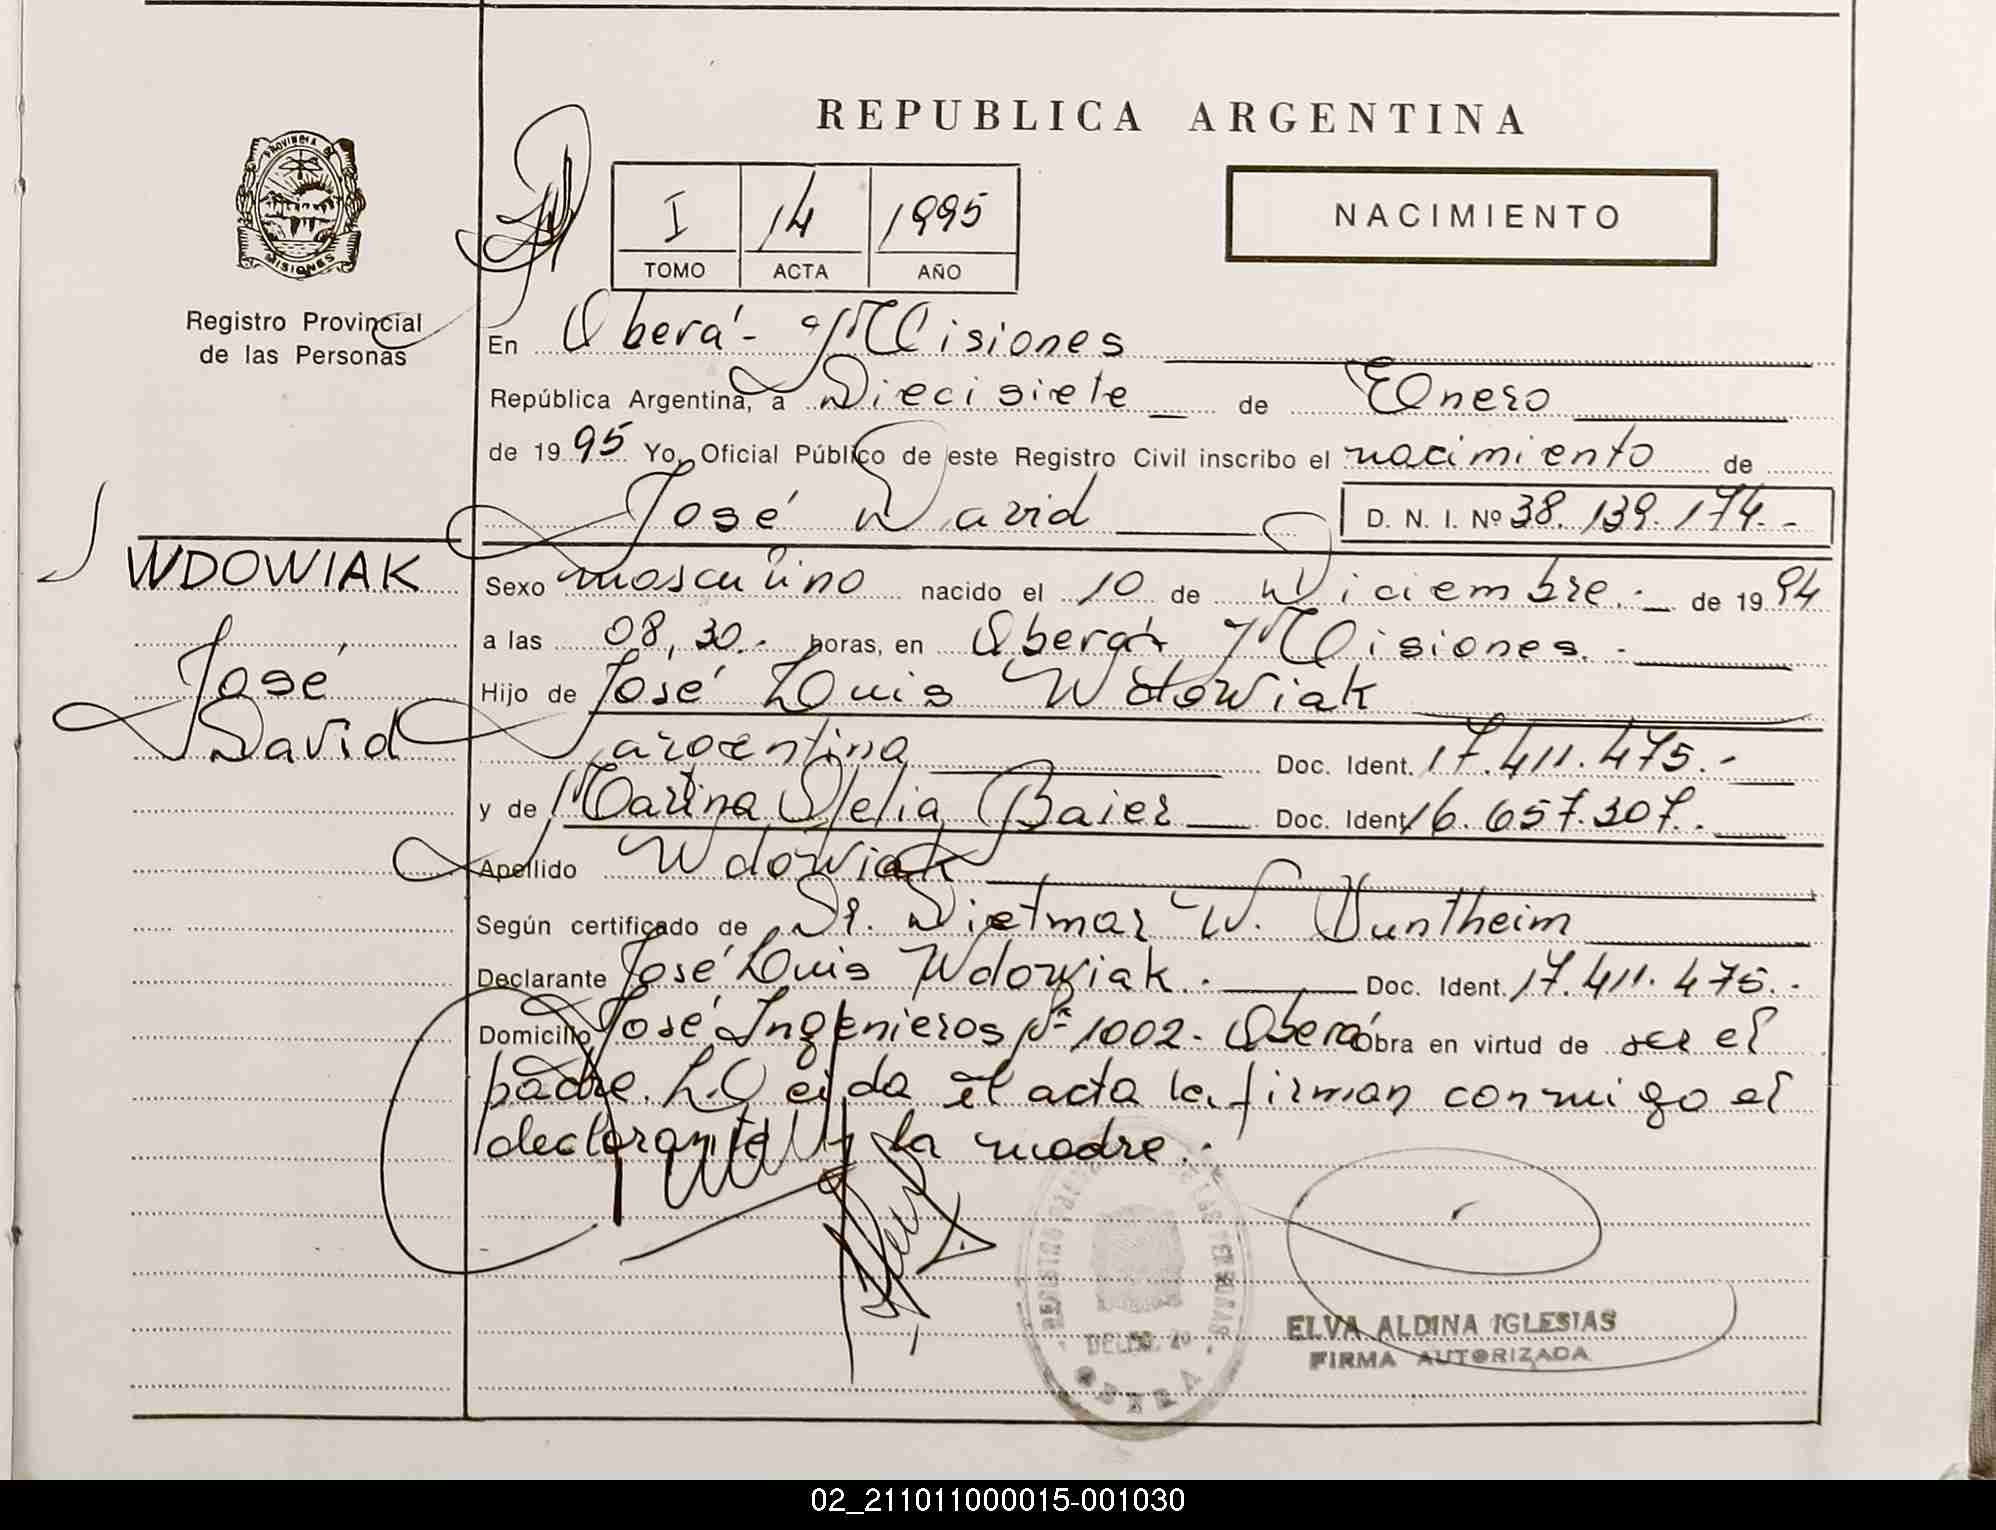 REPUBLICA ARGENTINA
PROVINCIA DE
MISIONES
Registro Provincial
de las Personas
I 14 1995
TOMO ACTA AÑO
NACIMIENTO
En Oberá - Misiones
República Argentina, a Diecisiete de Enero
de 1995 Yo, Oficial Público de este Registro Civil inscribo el nacimiento de
José David D. N. I. Nº 38.139.174.-
WDOWIAK
José
David
Sexo masculino nacido el 10 de Diciembre.- de 1994
a las 08,30.- horas, en Oberá- Misiones.-
Hijo de José Luis Wdowiak
argentina Doc. Ident. 17.411.475.-
y de Marina Delia Baier Doc. Ident 16.657.307.-
Apellido Wdowiak
Según certificado de Dr. Dietmar W. Duntheim
Declarante José Luis Wdowiak.- Doc. Ident. 17.411.475.-
Domicilio José Ingenieros Nº 1002- Oberá Obra en virtud de ser el
padre. Leida el acta la firman conmigo el
declarante y la madre.-
ELVA ALDINA IGLESIAS
FIRMA AUTORIZADA
OBERA
02_211011000015-001030